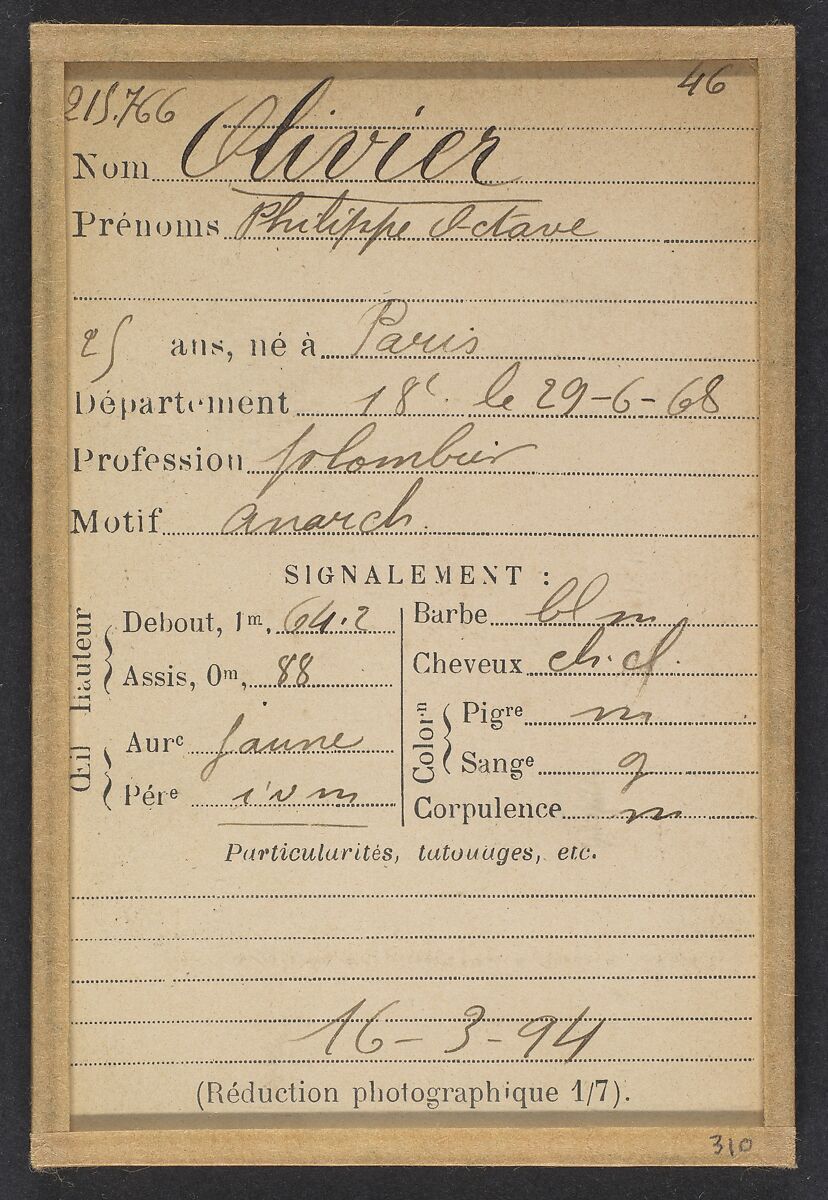 215.766
46
Nom Olivier
Prénoms Philippe Octave
25 ans, né à Paris
Département 18e. le 29-6-68
Profession plombier
Motif anarch.
SIGNALEMENT :
Hauteur
Debout, 1m, 64.2
Assis, 0m, 88
Œil
Aure jaune
Pére i v m
Barbe bl m
Cheveux ch. cl.
Colorn
Pigre m
Sange g
Corpulence m
Particularités, tatouages, etc.
16-3-94
(Réduction photographique 1/7).
310